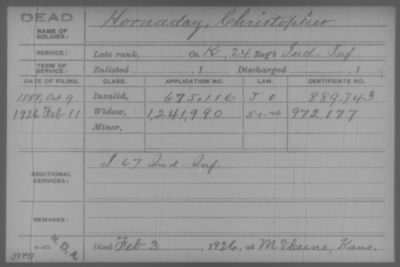 DEAD
NAME OF SOLDIER: Hornaday, Christopher
SERVICE: Late rank, Co. K, 24 Reg't Ind. Inf
TERM OF SERVICE: Enlisted , 1 Discharged , 1
DATE OF FILING. CLASS. APPLICATION NO. LAW. CERTIFICATE NO.
1888, Oct. 9 Invalid, 675,116 J O 889,743
1926 Feb-11 Widow, 1,241,990 972,177
Minor,
ADDITIONAL SERVICES: I 67 Ind. Inf.
REMARKS:
Died Feb 3, 1926, at McCune, Kans.